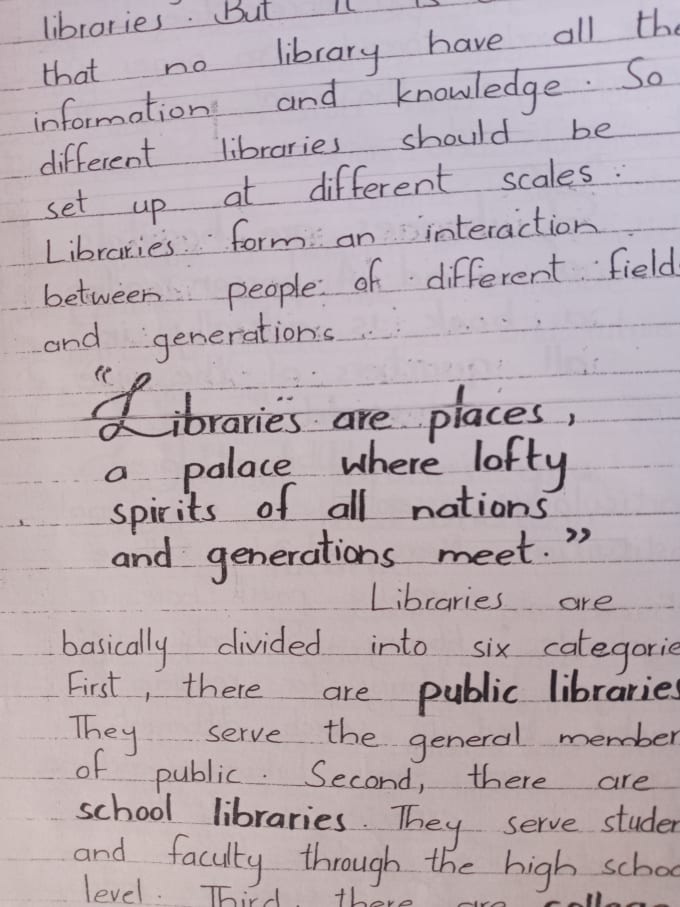 libraries. But it
that no library have all the
information and knowledge. So
different libraries should be
set up at different scales.
Libraries form an interaction
between people of different field
and generations
"Libraries are places,
a palace where lofty
spirits of all nations
and generations meet."
Libraries are
basically divided into six categorie
First, there are public libraries
They serve the general member
of public. Second, there are
school libraries. They serve studen
and faculty through the high schoo
level. Third, there are colleg